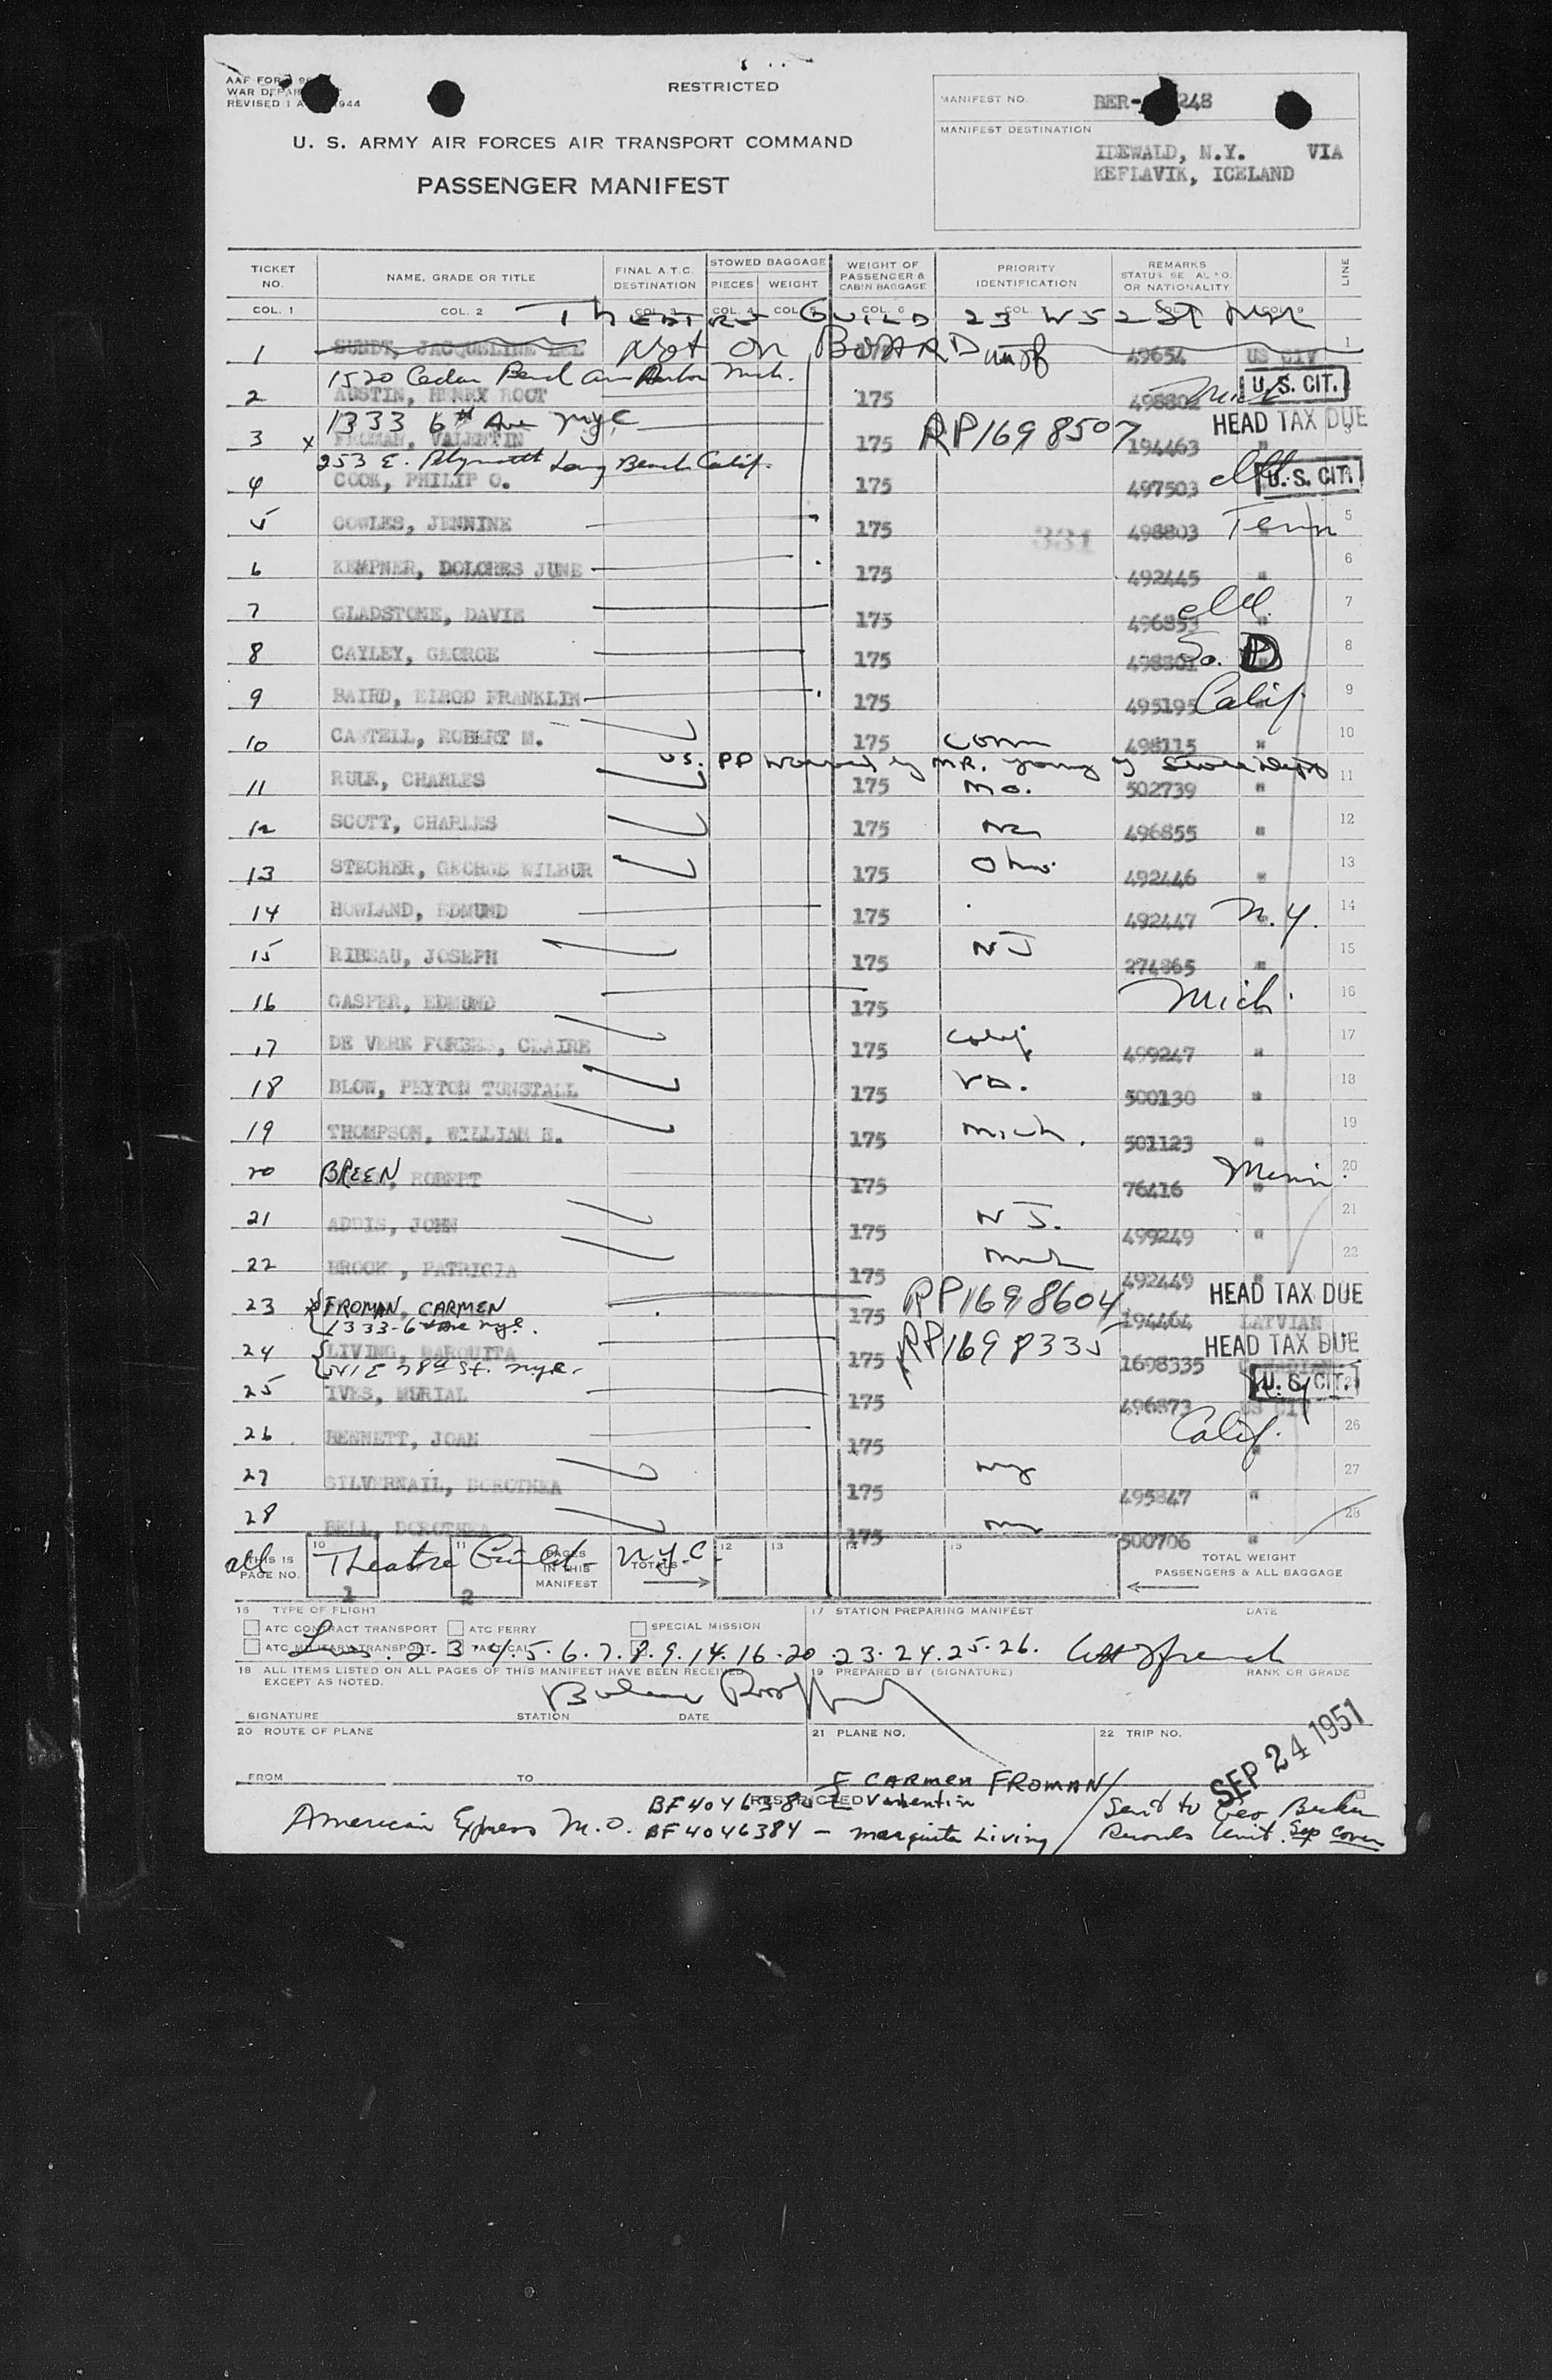 RESTRICTED
WAR
REVISED 1 1944
U. S. ARMY AIR FORCES AIR TRANSPORT COMMAND
PASSENGER MANIFEST
MANIFEST NO. BER- 248
MANIFEST DESTINATION
IDEWALD, N.Y. VIA
KEFLAVIK, ICELAND
TICKET NO. NAME, GRADE OR TITLE FINAL A.T.C. DESTINATION STOWED BAGGAGE PIECES WEIGHT WEIGHT OF PASSENGER & CABIN BAGGAGE PRIORITY IDENTIFICATION REMARKS OR NATIONALITY LINE
COL. 1 COL. 2 COL. 4
THEATRE GUILD 23 W 52 St
1 SUNDT, JACQUELINE LEE Not on BOARD 49654 US CIV 1
1520 Cedar Bend Ann Arbor Mich.
2 AUSTIN, HENRY ROOT 175 498802 Mich U. S. CIT.
1333 6th Ave NYC
3 x FROMAN, VALENTIN 175 RP1698507 194463 HEAD TAX DUE
253 E. Plymouth Long Beach Calif.
4 COOK, PHILIP O. 175 497503 Ill U. S. CIT.
5 COWLES, JENNINE 175 331 498803 Tenn 5
6 KEMPNER, DOLORES JUNE 175 492445 " 6
7 GLADSTONE, DAVIE 175 496853 Ill. 7
8 CAYLEY, GEORGE 175 So. D 8
9 BAIRD, ELROD FRANKLIN 175 495195 Calif 9
10 CASTELL, ROBERT M. 175 Conn 498115 " 10
U.S. PP waived by MR. Young of State Dept
11 RULE, CHARLES 175 Mo. 502739 " 11
12 SCOTT, CHARLES 175 496855 " 12
13 STECHER, GEORGE WILBUR 175 Ohio 492446 " 13
14 HOWLAND, EDMUND 175 492447 N.Y. 14
15 RIBEAU, JOSEPH 175 NJ 274865 " 15
16 GASPER, EDMUND 175 Mich. 16
17 DE VERE FORBES, CLAIRE 175 Calif. 499247 " 17
18 BLOW, PEYTON TUNSTALL 175 Va. 500130 " 18
19 THOMPSON, WILLIAM E. 175 Mich. 501123 " 19
20 BREEN, ROBERT 175 76416 Minn. 20
21 ADDIS, JOHN 175 NJ. 499249 " 21
22 BROOK, PATRICIA 175 Mich 492449 22
23 FROMAN, CARMEN 175 RP1698604 194464 HEAD TAX DUE LATVIAN
1333-6th Ave NYC.
24 LIVING, MARQUITA 175 RP1698335 1698335 HEAD TAX DUE
E 38th St. NYC.
25 IVES, MURIAL 175 496873 US CIT U. S. CIT. N.Y
26 BENNETT, JOAN 175 Calif. " 26
27 SILVERNAIL, DOROTHEA 175 NY 495847 " 27
28 BELL, DOROTHEA 175 500706 " 28
all Theatre Guild - N.Y.C.
THIS IS PAGE NO. 10 1 11 2 PAGES IN THIS MANIFEST TOTALS 12 13 14 15 TOTAL WEIGHT PASSENGERS & ALL BAGGAGE
16 TYPE OF FLIGHT 17 STATION PREPARING MANIFEST DATE
ATC CONTRACT TRANSPORT ATC FERRY SPECIAL MISSION
ATC MILITARY TRANSPORT TACTICAL
2. 3. 4. 5. 6. 7. 8. 9. 14. 16. 20. 23. 24. 25. 26.
18 ALL ITEMS LISTED ON ALL PAGES OF THIS MANIFEST HAVE BEEN RECEIVED EXCEPT AS NOTED. 19 PREPARED BY (SIGNATURE) RANK OR GRADE
SIGNATURE STATION DATE
20 ROUTE OF PLANE 21 PLANE NO. 22 TRIP NO.
SEP 24 1951
FROM TO
CARMEN FROMAN
RESTRICTED
BF4046380 Valentin
American Express M.O. BF4046384 - Marquita Living
Sent to Geo Becker
Records Unit. Sep cover